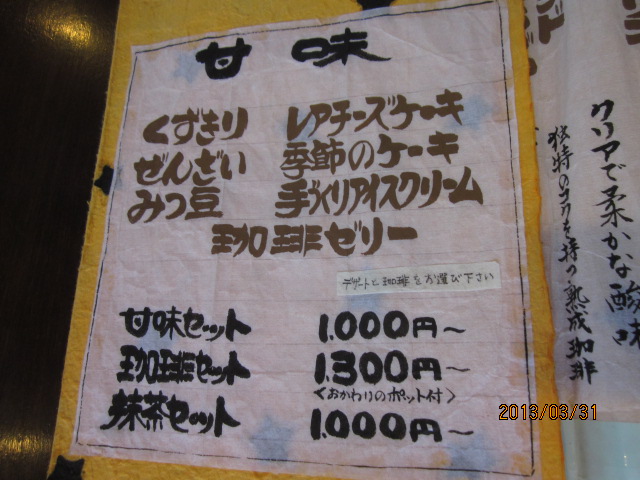 甘味
くずきり レアチーズケーキ
ぜんざい 季節のケーキ
みつ豆 手づくりアイスクリーム
珈琲ゼリー
デザートと珈琲をお選び下さい
甘味セット 1,000円～
珈琲セット 1,300円～
＜おかわりのポット付＞
抹茶セット 1,000円～
クリアで柔かな酸味
独特のコクを持つ熟成珈琲
2013/03/31